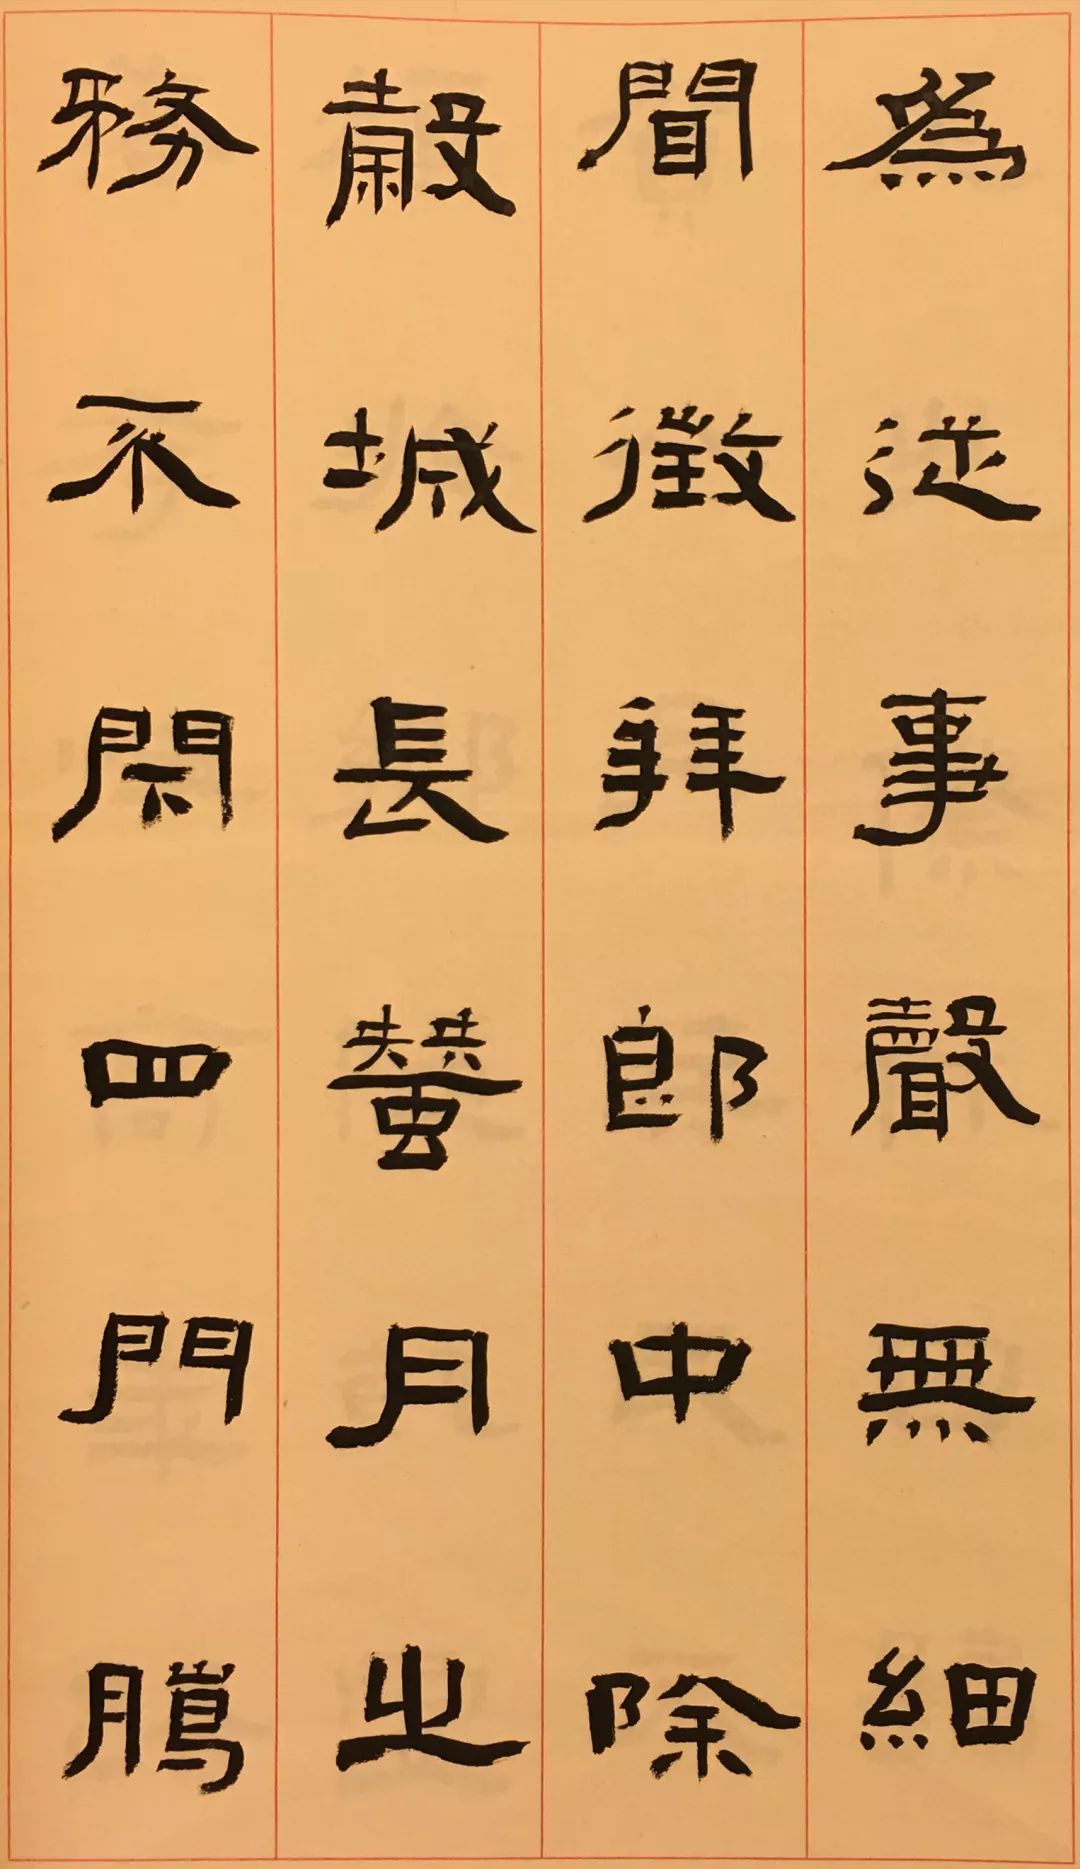 為從事聲無細
聞徵拜郎中除
穀城長蠶月之
務不閉四門臈